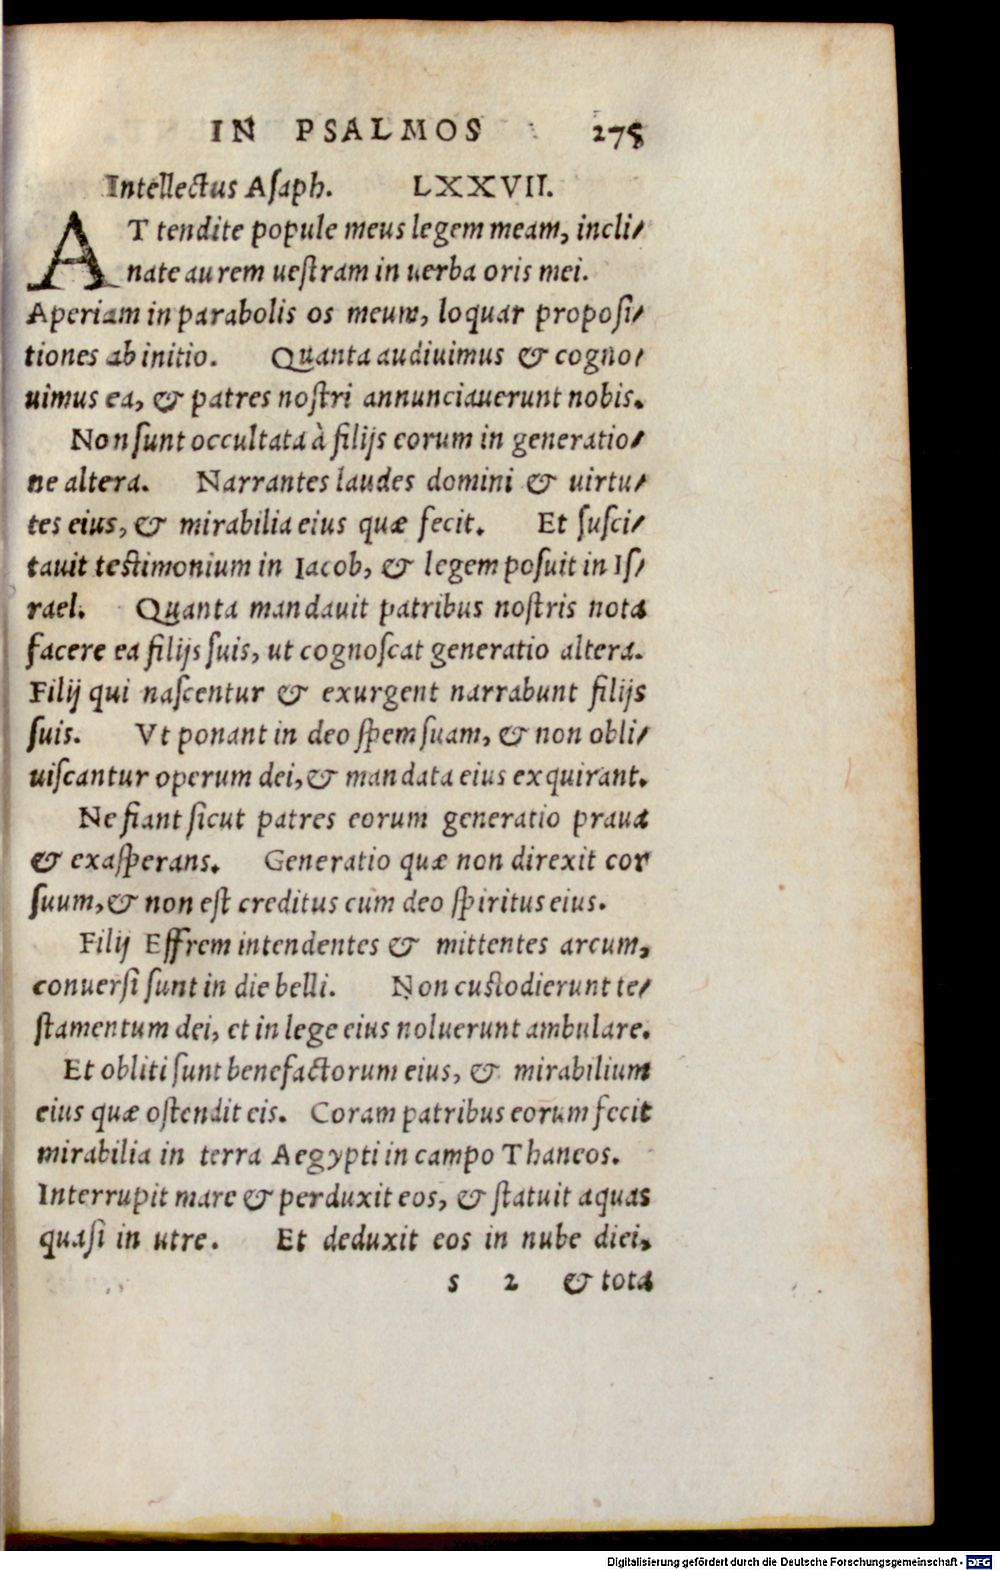 IN PSALMOS 275
Intellectus Asaph. LXXVII.
AT tendite popule meus legem meam, incli-
nate aurem uestram in uerba oris mei.
Aperiam in parabolis os meum, loquar proposi-
tiones ab initio. Quanta audiuimus & cogno-
uimus ea, & patres nostri annunciauerunt nobis.
Non sunt occultata à filijs eorum in generatio-
ne altera. Narrantes laudes domini & uirtu-
tes eius, & mirabilia eius quæ fecit. Et susci-
tauit testimonium in Iacob, & legem posuit in Is-
rael. Quanta mandauit patribus nostris nota
facere ea filijs suis, ut cognoscat generatio altera.
Filij qui nascentur & exurgent narrabunt filijs
suis. Vt ponant in deo spem suam, & non obli-
uiscantur operum dei, & mandata eius exquirant.
Ne fiant sicut patres eorum generatio praua
& exasperans. Generatio quæ non direxit cor
suum, & non est creditus cum deo spiritus eius.
Filij Effrem intendentes & mittentes arcum,
conuersi sunt in die belli. Non custodierunt te-
stamentum dei, et in lege eius noluerunt ambulare.
Et obliti sunt benefactorum eius, & mirabilium
eius quæ ostendit eis. Coram patribus eorum fecit
mirabilia in terra Aegypti in campo Thaneos.
Interrupit mare & perduxit eos, & statuit aquas
quasi in utre. Et deduxit eos in nube diei,
s 2 & tota
Digitalisierung gefördert durch die Deutsche Forschungsgemeinschaft - DFG